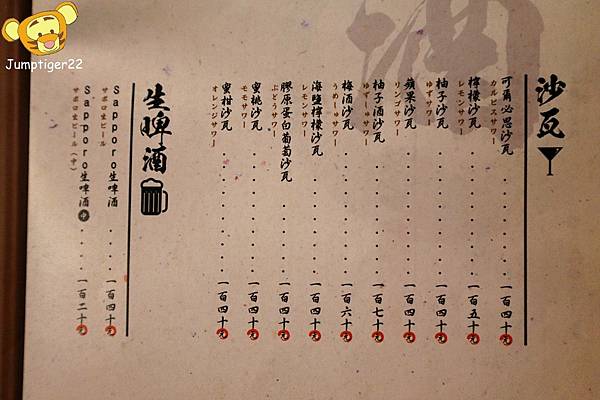 Jumptiger22
沙瓦
可爾必思沙瓦 ........ 一百四十元
カルピスサワー
檸檬沙瓦 ........ 一百五十元
レモンサワー
柚子沙瓦 ........ 一百四十元
ゆずサワー
蘋果沙瓦 ........ 一百四十元
リンゴサワー
柚子酒沙瓦 ........ 一百七十元
ゆずしゅサワー
梅酒沙瓦 ........ 一百六十元
うめしゅサワー
海鹽檸檬沙瓦 ........ 一百四十元
レモンサワー
膠原蛋白葡萄沙瓦 ........ 一百四十元
ぶどうサワー
蜜桃沙瓦 ........ 一百四十元
モモサワー
蜜柑沙瓦 ........ 一百四十元
オレンジサワー
生啤酒
Sapporo生啤酒 ........ 一百四十元
サポロ生ビール
Sapporo生啤酒 中 ........ 一百二十元
サポロ生ビール（中）